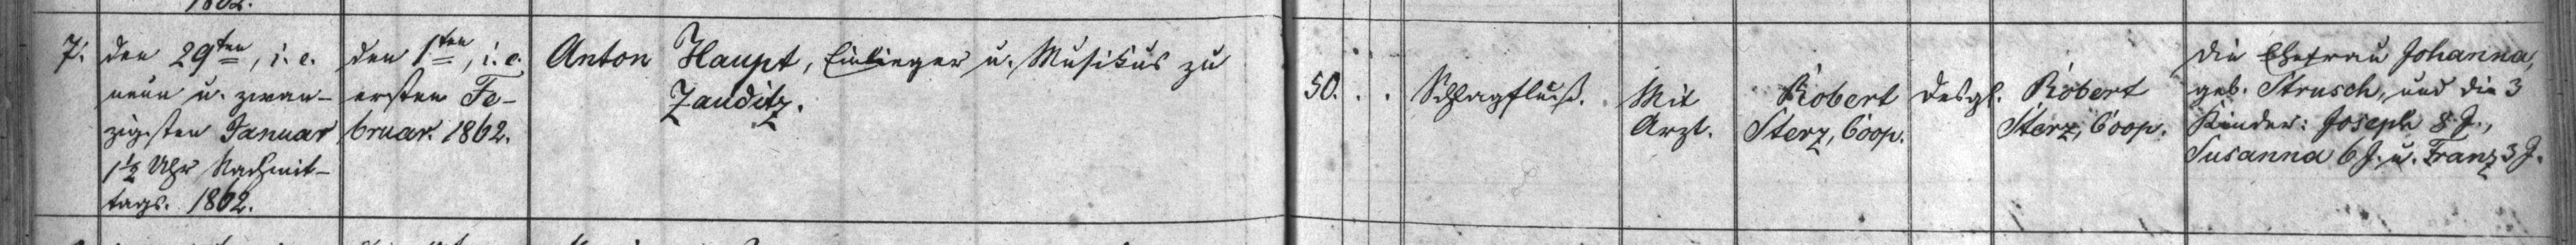 1862.
7.
den 29ten, i. e.
neun u. zwan-
zigsten Januar
1½ Uhr Nachmit-
tags. 1862.
den 1ten, i. e.
ersten Fe-
bruar. 1862.
Anton Haupt, Einlieger u. Musikus zu
Zauditz.
50. . .
Schlagfluß.
Mit
Arzt.
Robert
Sterz, Coop.
desgl.
Robert
Sterz, Coop.
die Ehefrau Johanna,
geb. Strusch, und die 3
Kinder: Joseph 8 J.,
Susanna 6 J. u. Franz 3 J.